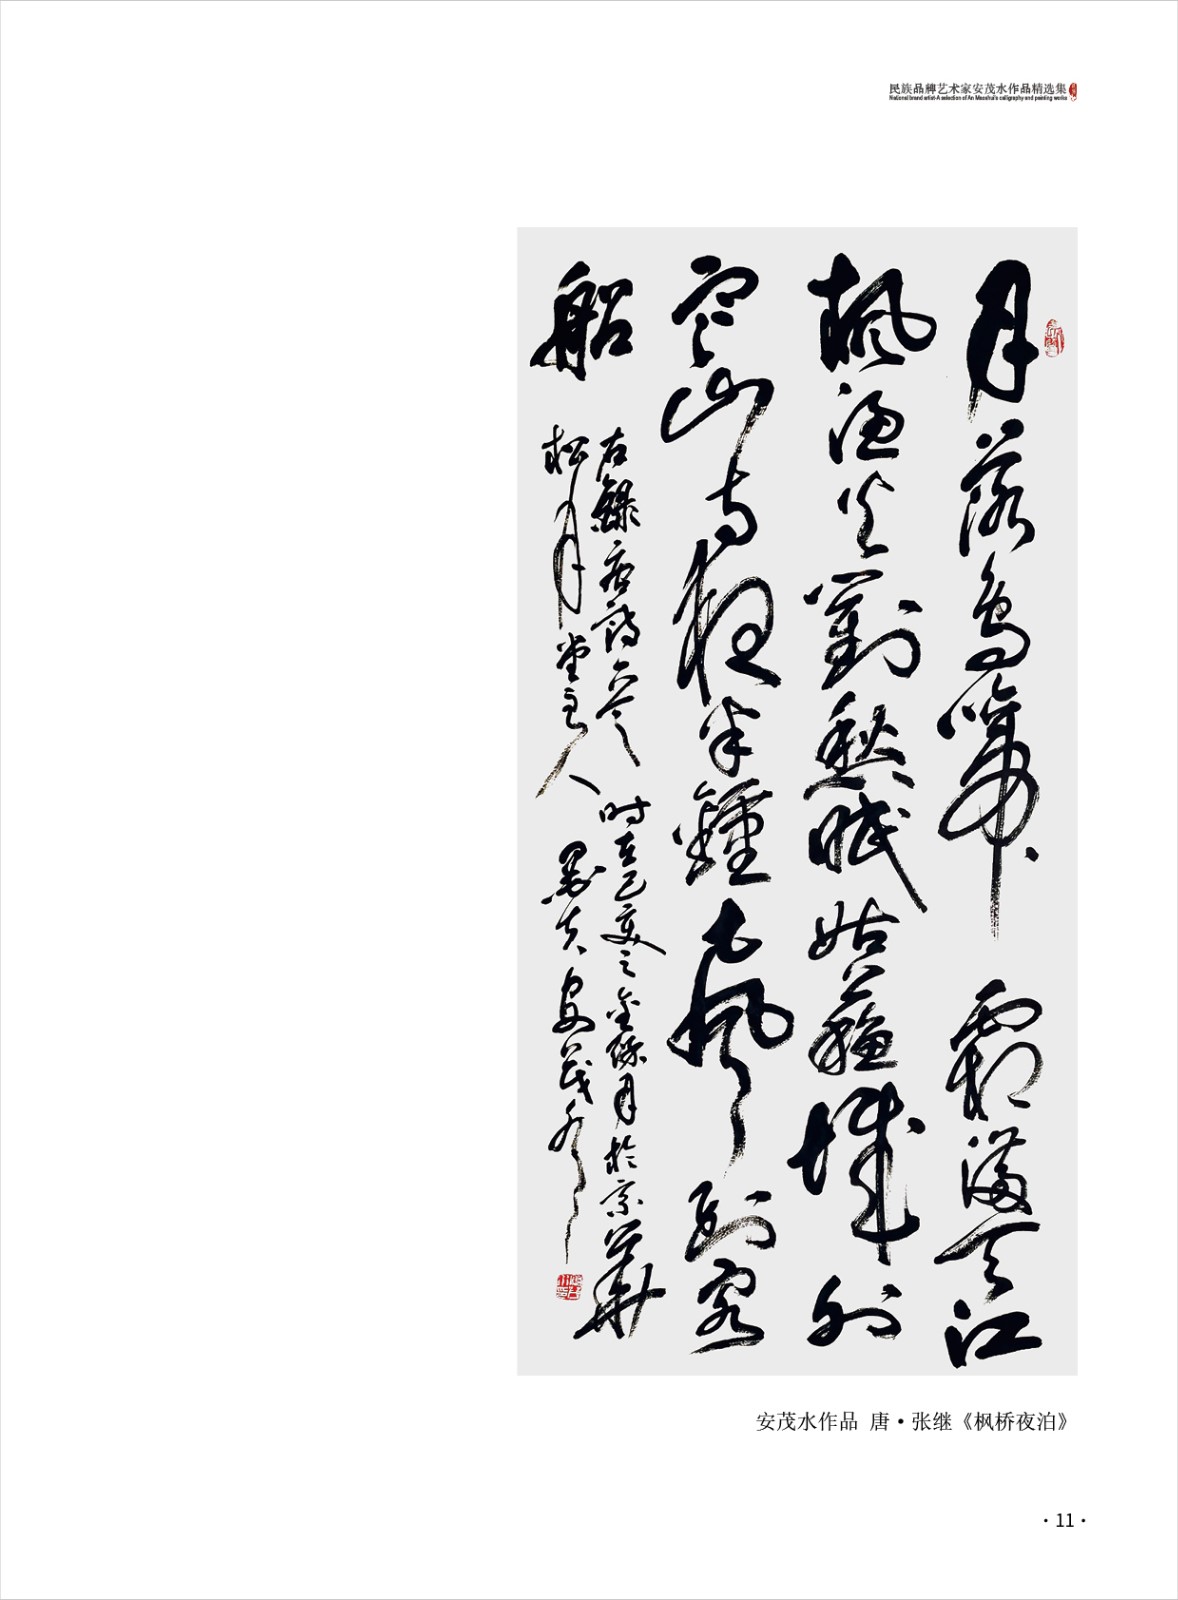 民族品牌艺术家安茂水作品精选集
National brand artist-A selection of An Maoshui's calligraphy and painting works
月落烏啼霜滿天江
枫渔火對愁眠姑蘇城外
寒山寺夜半鐘聲到客
船
右錄唐詩一首时在己亥之金秋月於京華
松月堂主人墨夫安茂水
安茂水作品 唐·张继《枫桥夜泊》
·11·